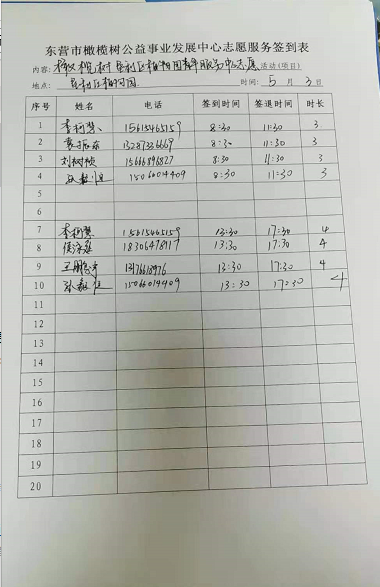 东营市橄榄树公益事业发展中心志愿服务签到表
内容: 橄榄树垦利区植物园青年服务中心志愿 活动(项目)
地点: 垦利区植物园 时间: 5 月 3 日
序号 姓名 电话 签到时间 签退时间 时长
1 李柯慧 15615465159 8:30 11:30 3
2 13287336669 8:30 11:30 3
3 刘树桢 15666896827 8:30 11:30 3
4 1506604409 8:30 11:30 3
5
6
7 李柯慧 15615465159 13:30 17:30 4
8 18306478117 13:30 17:30 4
9 13:30 17:30 4
10 15066014409 13:30 17:30 4
11
12
13
14
15
16
17
18
19
20